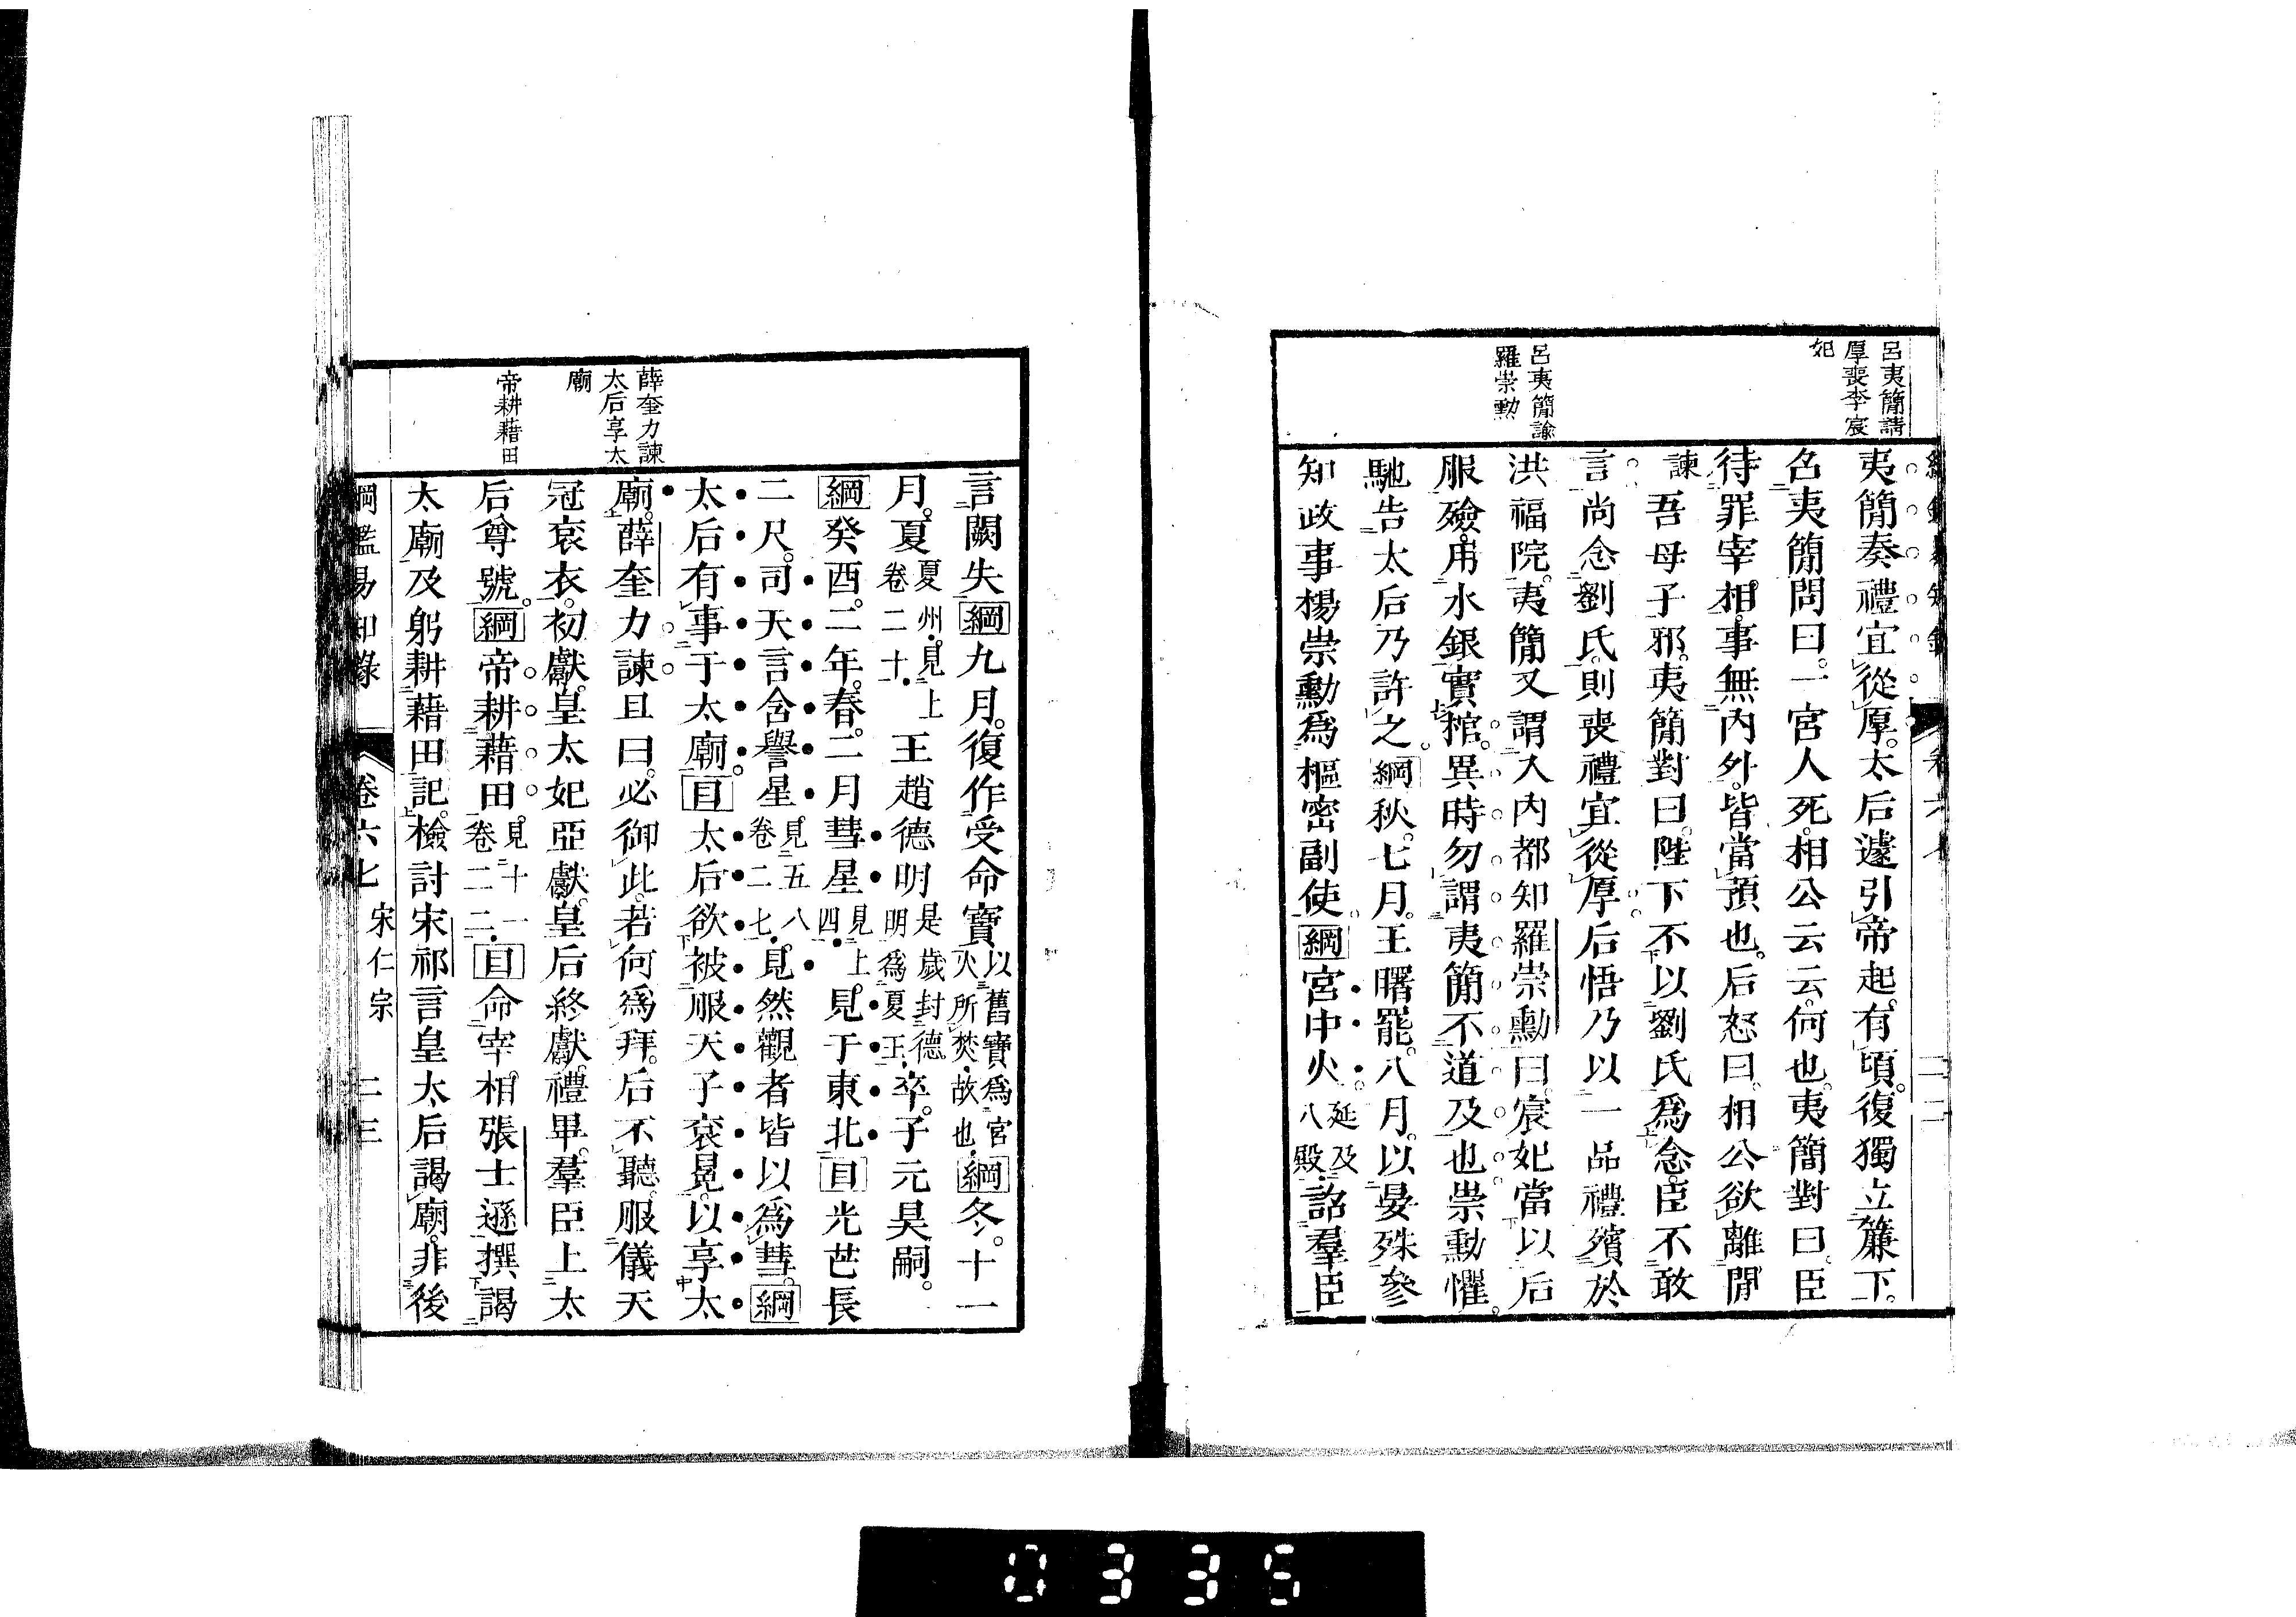 呂夷簡請
厚喪李宸
妃
呂夷簡諭
羅崇勳
夷簡奏禮宜從厚。太后遽引帝起。有頃。復獨立簾下。
召夷簡問曰。一宮人死。相公云云。何也。夷簡對曰。臣
待罪宰相。事無內外。皆當預也。后怒曰。相公欲離間
諫吾母子邪。夷簡對曰。陛下不以劉氏為念。臣不敢
言。尚念劉氏。則喪禮宜從厚。后悟。乃以一品禮殯於
洪福院。夷簡又謂入內都知羅崇勳曰。宸妃當以后
服殮。用水銀實棺。異時勿謂夷簡不道及也。崇勳懼。
馳告太后。乃許之。綱秋。七月。王曙罷。八月。以晏殊參
知政事。楊崇勳爲樞密副使。綱宮中火。延及八殿。詔羣臣
薛奎力諫
太后享太
廟
帝耕藉田
言闕失。綱九月。復作受命寶。以舊寶爲宮火所焚。故也。綱冬。十一
月。夏夏州。見上卷二十。王趙德明是歲封德明爲夏王。卒。子元昊嗣。
綱癸酉。二年。春。二月。彗星見上四。見于東北。目光芒長
二尺。司天言含譽星。見五八卷二七。見。然觀者皆以爲彗。綱
太后有事于太廟。目太后欲被服天子袞冕。以享太
廟。薛奎力諫。且曰。必御此。若何爲拜。后不聽。服儀天
冠袞衣。初獻。皇太妃亞獻。皇后終獻。禮畢。羣臣上太
后尊號。綱帝耕藉田。見十一卷二二。目命宰相張士遜撰謁
太廟及躬耕藉田記。檢討宋祁言皇太后謁廟。非後
綱鑑易知錄 卷六七 宋仁宗 二三